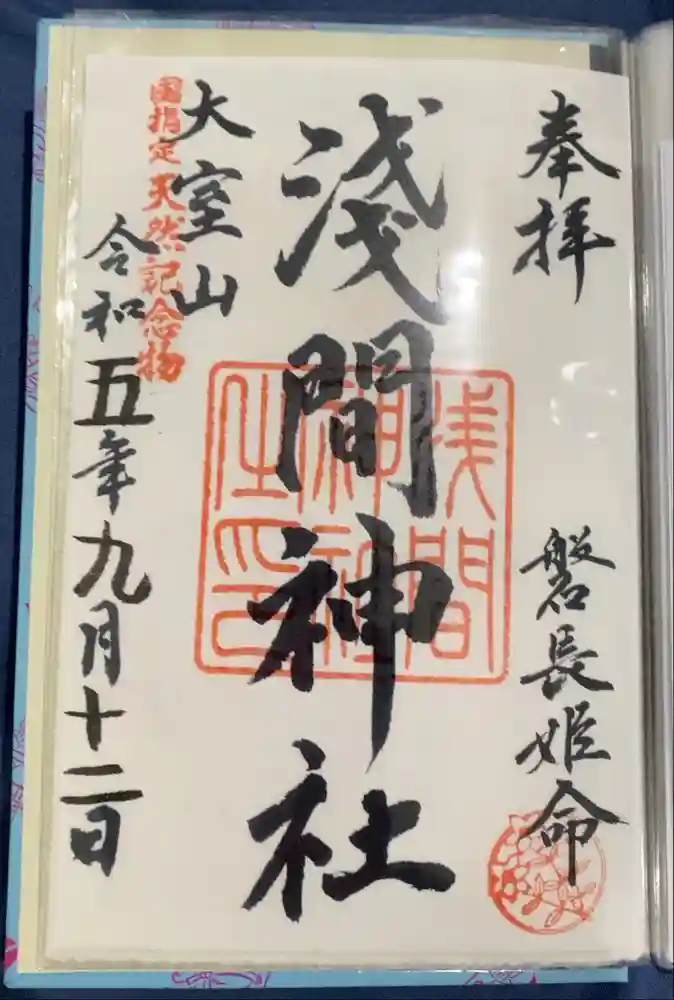 奉拝
磐長姫命
淺間神社
浅間
神社
之印
大室山
国指定天然記念物
令和五年九月十二日